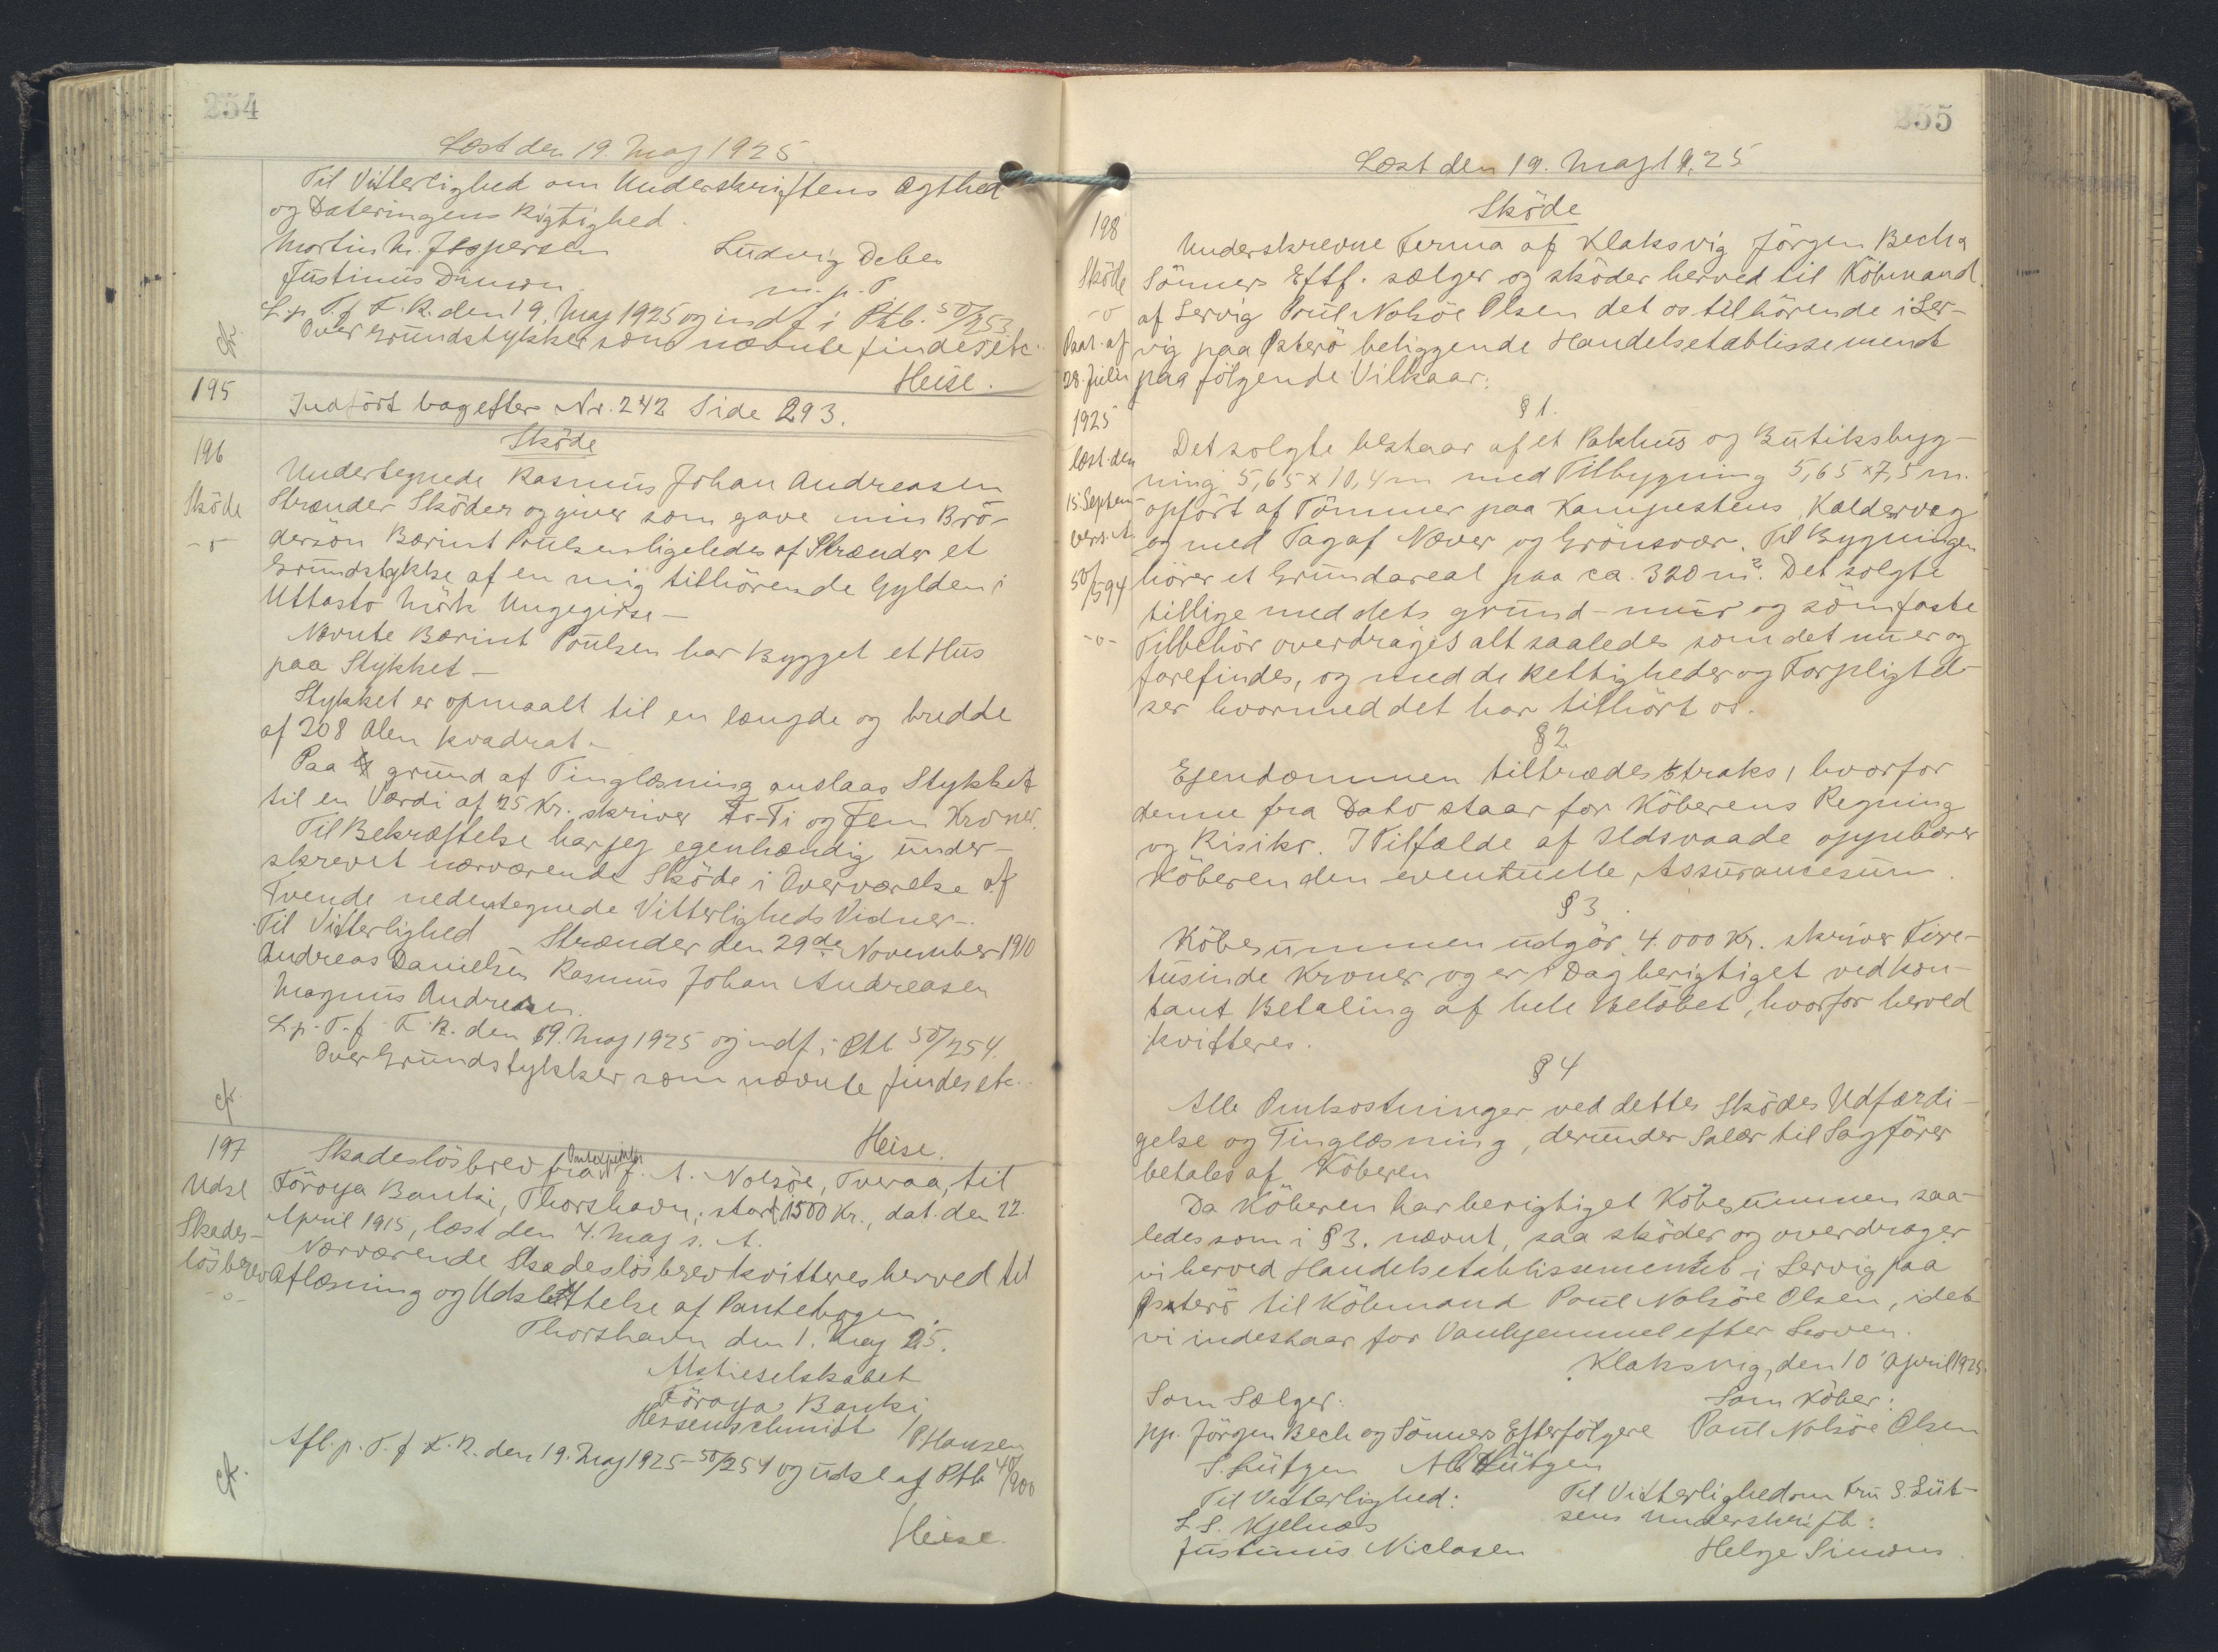 254
Læst den 19. Maj 1925.
Til Vitterlighed om Underskriftens Ægthed
og Dateringens Rigtighed.
Mortin M. Jespersen Ludvig Debes
Justinus m. p. P
L. p. T. f. F. R. den 19. Maj 1925 og indf i Ptb. 50/253.
Over Grundstykker som nævnte findes etc.
Heise.
195
Indført bagefter Nr. 242 Side 293.
196
Sköde
-o-
Sköde
Undertegnede Rasmus Johan Andreasen
Strænder Sköder og giver som gave min Bro-
dersön Bærint Poulsen ligeledes af Strænder et
Grundstykke af en mig tilhörende Gylden i
Uttasto Mörk Ungegirse -
Nævnte Bærint Poulsen har Bygget et Hus
paa Stykket -
Stykket er opmaalt til en længde og bredde
af 208 Alen kvadrat -
Paa grund af Tinglæsning anslaas Stykket
til en Værdi af 25 Kr. skriver To-Ti og Fem Kroner.
Til Bekræftelse har jeg egenhændig under-
skrevet nærværende Sköde i Overværelse af
Tvende nedentegnede Vitterligheds Vidner -.
Til Vitterlighed Strænder den 29de November 1910
Andreas Danielsen Rasmus Johan Andreasen
Magnus Andreasen.
L. p. T. f. F. R. den 19. Maj 1925 og indf i Ptb 50/254.
Over Grundstykker som nævnte findes etc.
Heise.
197
Udsl
Skades-
lösbrev
-o-
Skadeslösbrev fra J. A. Nolsöe, Tveraa, til
Föroya Banki, Thorshavn, stort 1500 Kr., dat. den 22.
April 1915, læst den 4. Maj s. A.
Nærværende Skadeslösbrev kvitteres herved til
Aflæsning og Udslettelse af Pantebogen.
Thorshavn den 1. Maj 25.
Aktieselskabet
Föroya Banki
Hessenschmidt / P. Hansen
Afl. p. T. f. F. R. den 19. Maj 1925 - 50/254 og udsl af Ptb 40/900
Heise.
255
Læst den 19. Maj 1925
198
Sköde
-o-
28. Juli
1925
læst den
15. Septem-
ber s. A.
50/594
-o-
Sköde
Underskrevne Ferma af Klaksvig Jörgen Bech &
Sönners Eftf. sælger og sköder herved til Köbmand
af Lervig Poul Nolsöe Olsen det os tilhörende i Ler-
vig paa Österö beliggende Handelsetablissement
paa fölgende Vilkaar:
§ 1.
Det solgte bestaar af et Pakhus og Butiksbyg-
ning 5,65 x 10,4 m med Tilbygning 5,65 x 7,5 m.
opfört af Tömmer paa Kampestens Kældervæg
og med Tag af Næver og Grönsvær. Til Bygningen
hörer et Grundareal paa ca. 320 m². Det solgte
tillige med dets grund- mur og sömfaste
Tilbehör overdrages alt saaledes som det nu er og
forefindes, og med de Rettigheder og Forpligtel-
ser hvormed det har tilhört os.
§ 2
Ejendommen tiltrædes straks, hvorfor
denne fra Dato staar for Köberens Regning
og Risiko. I Tilfælde af Ildsvaade oppebærer
Köberen den eventuelle Assurancesum.
§ 3.
Köbesummen udgör 4.000 Kr. skriver Fire-
tusinde Kroner og er i Dag berigtiget ved kon-
tant Betaling af hele Belöbet, hvorfor herved
kvitteres.
§ 4
Alle Omkostninger ved dettes Sködes Udfærdi-
gelse og Tinglæsning, derunder Salær til Sagförer
betales af Köberen
Da Köberen har berigtiget Köbesummen saa-
ledes som i § 3. nævnt, saa sköder og overdrager
vi herved Handelsetablissementet i Lervig paa
Österö til Köbmand Poul Nolsöe Olsen, idet
vi indestaar for Vanhjemmel efter Loven.
Klaksvig, den 10 April 1925.
Som Sælger: Som Köber:
pp. Jörgen Bech og Sönners Efterfölgere Poul Nolsöe Olsen
S. Lützen Lützen
Til Vitterlighed: Til Vitterlighed om Fru S. Lüt-
L. S. Kjelnæs zens Underskrift:
Justinus Niclasen Helge Simons